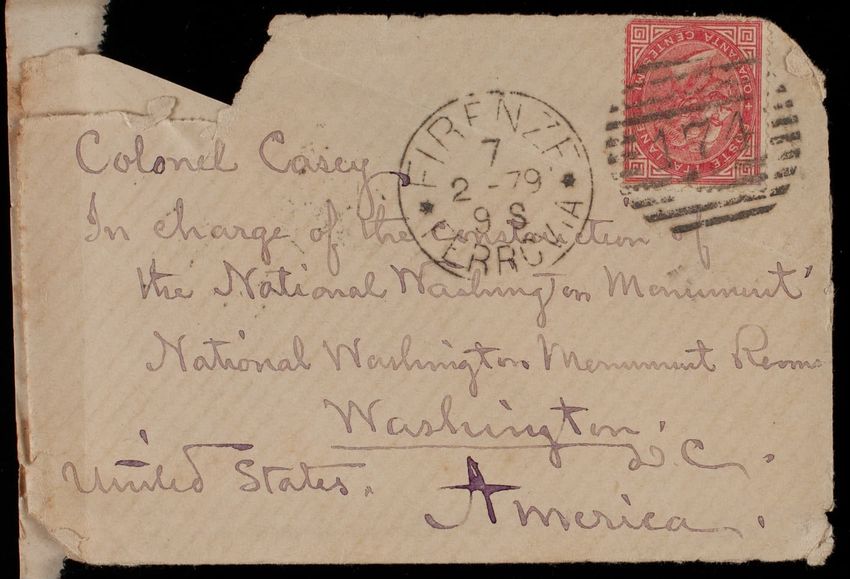 Colonel Casey,
In charge of the Construction of
the National Washington Monument
National Washington Monument Rooms
Washington.
D.C.
United States.
America.
FIRENZE
7
2 -79
9 S
FERROVIA
POSTE ITALIANE
QUARANTA CENTESIMI
174